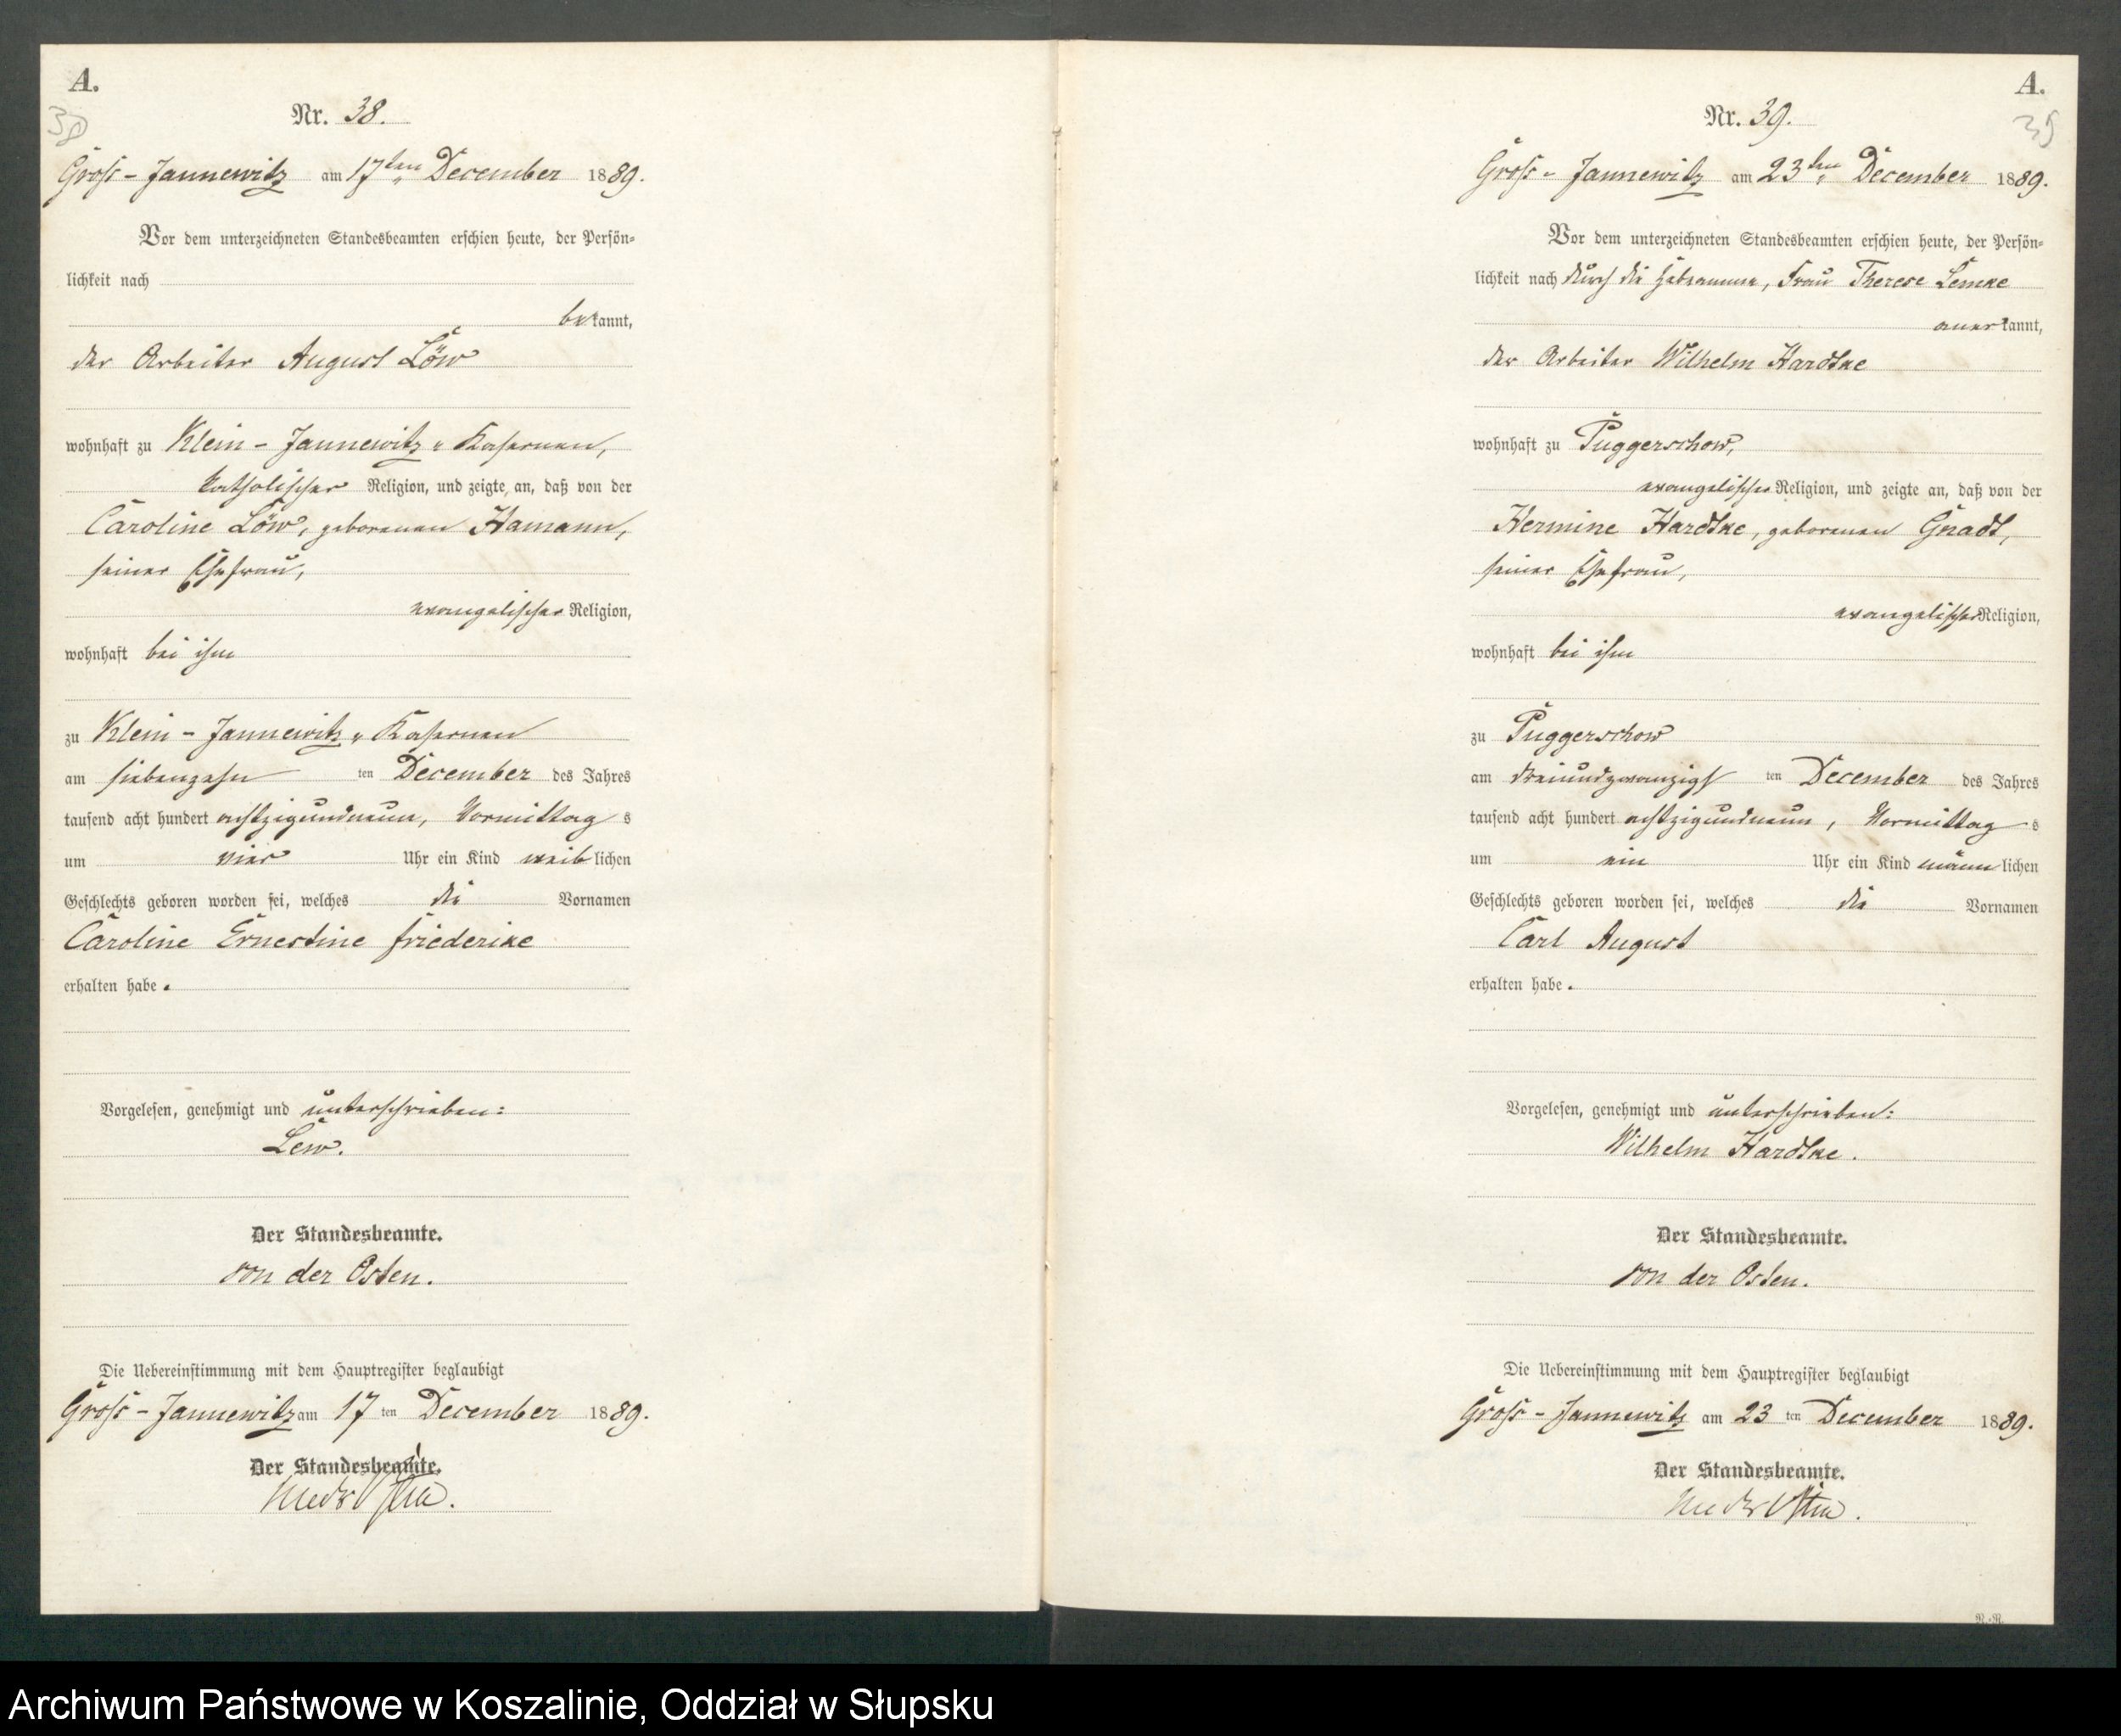 A.
38
Nr. 38.
Gross-Jannewitz am 17ten December 1889.
Vor dem unterzeichneten Standesbeamten erschien heute, der Persön-
lichkeit nach
bekannt,
der Arbeiter August Löw
wohnhaft zu Klein-Jannewitz-Kasernen,
katholischer Religion, und zeigte an, daß von der
Caroline Löw, geborenen Hamann,
seiner Ehefrau,
evangelischer Religion,
wohnhaft bei ihm
zu Klein-Jannewitz-Kasernen
am siebenzehn ten December des Jahres
tausend acht hundert achtzigundneun, Vormittag s
um vier Uhr ein Kind weiblichen
Geschlechts geboren worden sei, welches die Vornamen
Caroline Ernestine Friederike
erhalten habe.
Vorgelesen, genehmigt und unterschrieben:
Lew.
Der Standesbeamte.
von der Osten.
Die Uebereinstimmung mit dem Hauptregister beglaubigt
Gross-Jannewitz am 17 ten December 1889.
Der Standesbeamte.
von der Osten.
A.
39
Nr. 39.
Gross-Jannewitz am 23ten December 1889.
Vor dem unterzeichneten Standesbeamten erschien heute, der Persön-
lichkeit nach durch die Hebeamme, Frau Therese Lemke
anerkannt,
der Arbeiter Wilhelm Hardtke
wohnhaft zu Puggerschow,
evangelischer Religion, und zeigte an, daß von der
Hermine Hardtke, geborenen Gnadt,
seiner Ehefrau,
evangelischer Religion,
wohnhaft bei ihm
zu Puggerschow
am dreiundzwanzigs ten December des Jahres
tausend acht hundert achtzigundneun, Vormittag s
um ein Uhr ein Kind männlichen
Geschlechts geboren worden sei, welches die Vornamen
Carl August
erhalten habe.
Vorgelesen, genehmigt und unterschrieben:
Wilhelm Hardtke.
Der Standesbeamte.
von der Osten.
Die Uebereinstimmung mit dem Hauptregister beglaubigt
Gross-Jannewitz am 23 ten December 1889.
Der Standesbeamte.
von der Osten.
Archiwum Państwowe w Koszalinie, Oddział w Słupsku